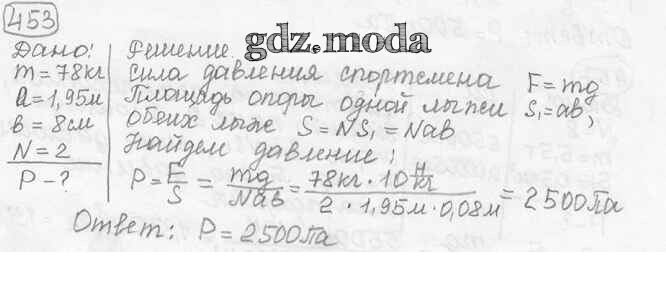 453
gdz.moda
Дано:
m = 78кг
a = 1,95м
в = 8см
N = 2
P - ?
Решение.
Сила давления спортсмена F = mg
Площадь опоры одной лыжи S₁ = ab,
обеих лыж S = NS₁ = Nab
Найдем давление:
P = F/S = mg/Nab = 78кг · 10 Н/кг / 2 · 1,95м · 0,08м = 2500Па
Ответ: P = 2500Па